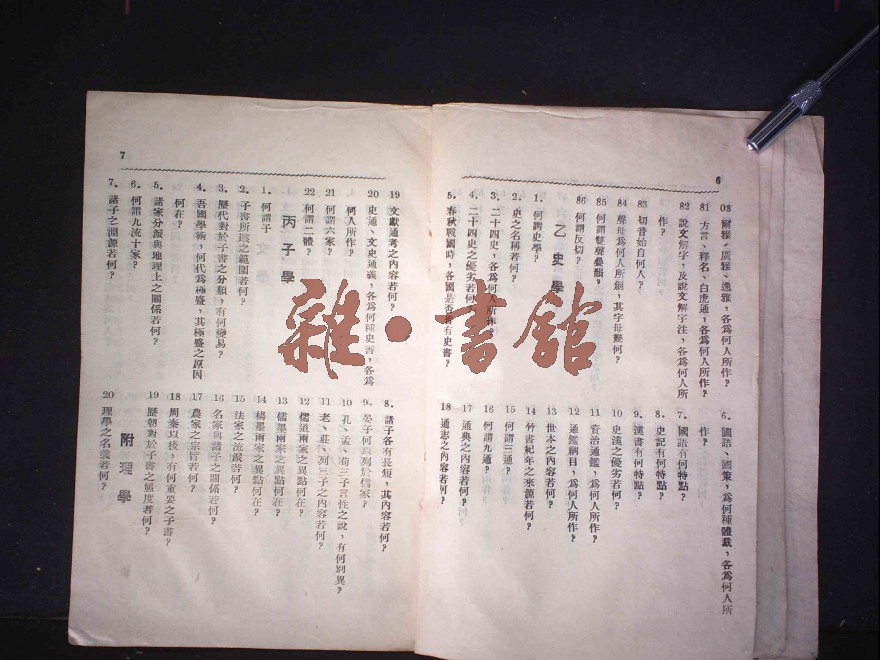 6
08 爾雅，廣雅，逸雅，各爲何人所作？
81 方言、釋名、白虎通，各爲何人所作？
82 說文解字，及說文解字注，各爲何人所
作？
83 切音始自何人？
84 聲母爲何人所創，其字母幾何？
85 何謂雙聲疊韻？
86 何謂反切？
乙史學
1. 何謂史學？
2. 史之名稱若何？
3. 二十四史，各爲何人所作？
4. 二十四史之優劣若何？
5. 春秋戰國時，各國是否俱有史書？
6. 國語、國策，爲何種體裁，各爲何人所
作？
7. 國語有何特點？
8. 史記有何特點？
9. 漢書有何特點？
10 史漢之優劣若何？
11 資治通鑑，爲何人所作？
12 通鑑綱目，爲何人所作？
13 世本之內容若何？
14 竹書紀年之來源若何？
15 何謂三通？
16 何謂九通？
17 通典之內容若何？
18 通志之內容若何？
7
19 文獻通考之內容若何？
20 史通、文史通義，各爲何種史書，各爲
何人所作？
21 何謂六家？
22 何謂二體？
丙子學
1. 何謂子
2. 子書所賅之範圍若何？
3. 歷代對於子書之分類，有何變易？
4. 吾國學術，何代爲極盛，其極盛之原因
何在？
5. 諸家分派與地理上之關係若何？
6. 何謂九流十家？
7. 諸子之淵源若何？
8. 諸子各有長短，其內容若何？
9. 晏子何以列於儒家？
10 孔、孟、荀三子言性之說，有何別異？
11 老、莊、列三子之內容若何？
12 儒道兩家之異點何在？
13 儒墨兩家之異點何在？
14 楊墨兩家之異點何在？
15 法家之流派若何？
16 名家與諸子之關係若何？
17 農家之宗旨若何？
18 周秦以後，有何重要之子書？
19 歷朝對於子書之態度若何？
附理學
20 理學之名義若何？
雜·書館